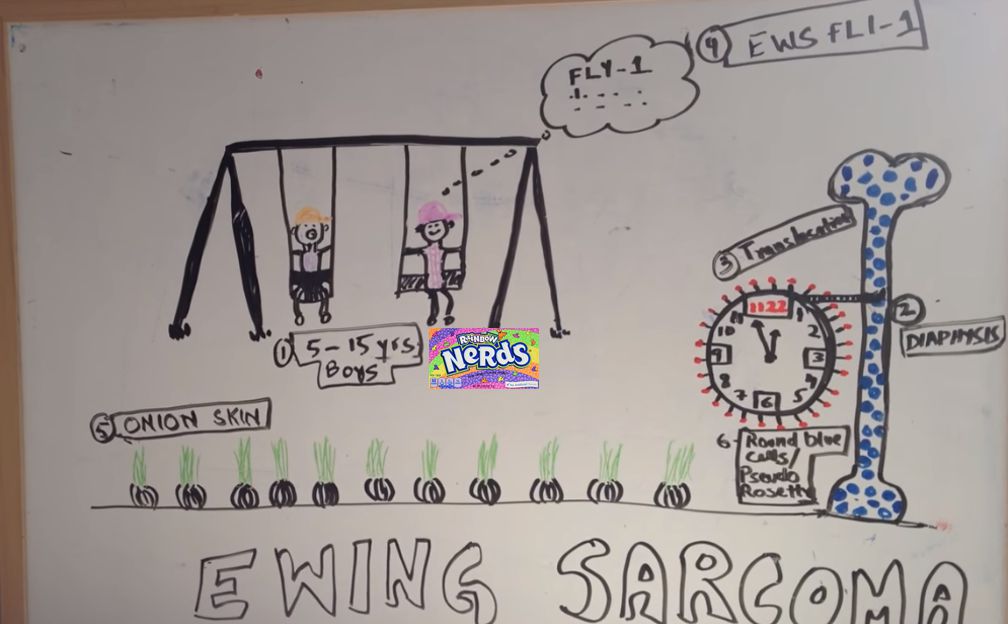 ④ EWS FLI-1
FLY-1
③ Translocation
11:22
11 1
10 2
9 3
8 4
7 6 5
② DIAPHYSIS
① 5-15 yrs
Boys
RAINBOW
NeRDS
⑤ ONION SKIN
6- Round blue
cells/
Pseudo
Rosette
EWING SARCOMA